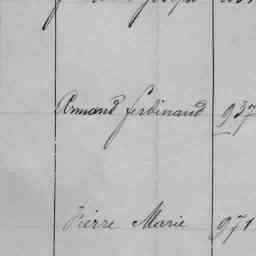 Armand Ferdinand 937
Pierre Marie 971